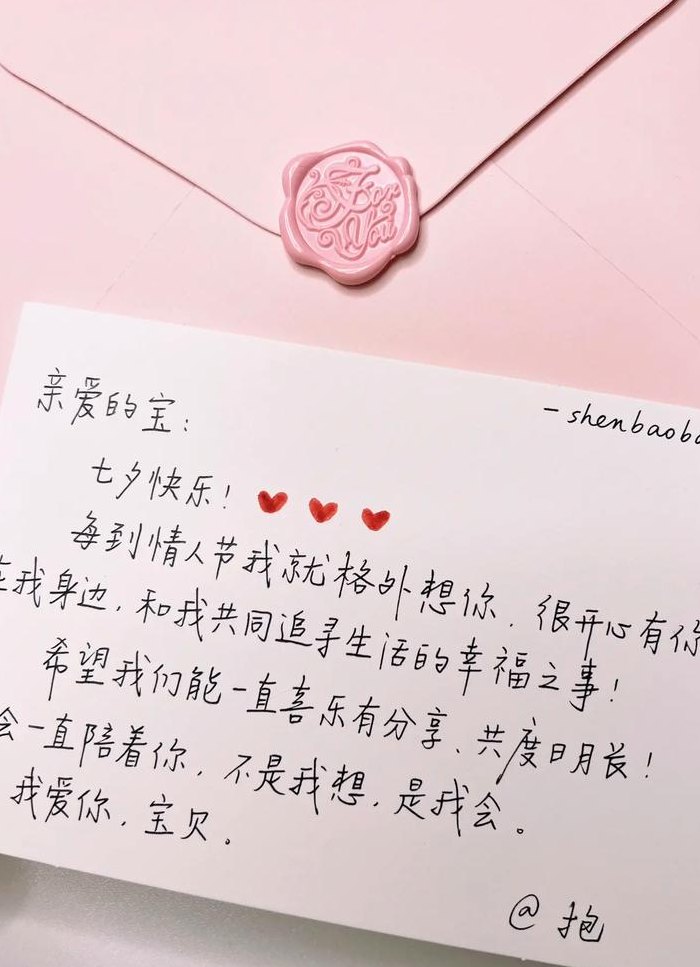 For
You
亲爱的宝:
- shenbaoba
七夕快乐!
每到情人节我就格外想你、很开心有你
在我身边,和我共同追寻生活的幸福之事!
希望我们能一直喜乐有分享、共度日月长!
会一直陪着你,不是我想,是我会。
我爱你,宝贝。
@抱